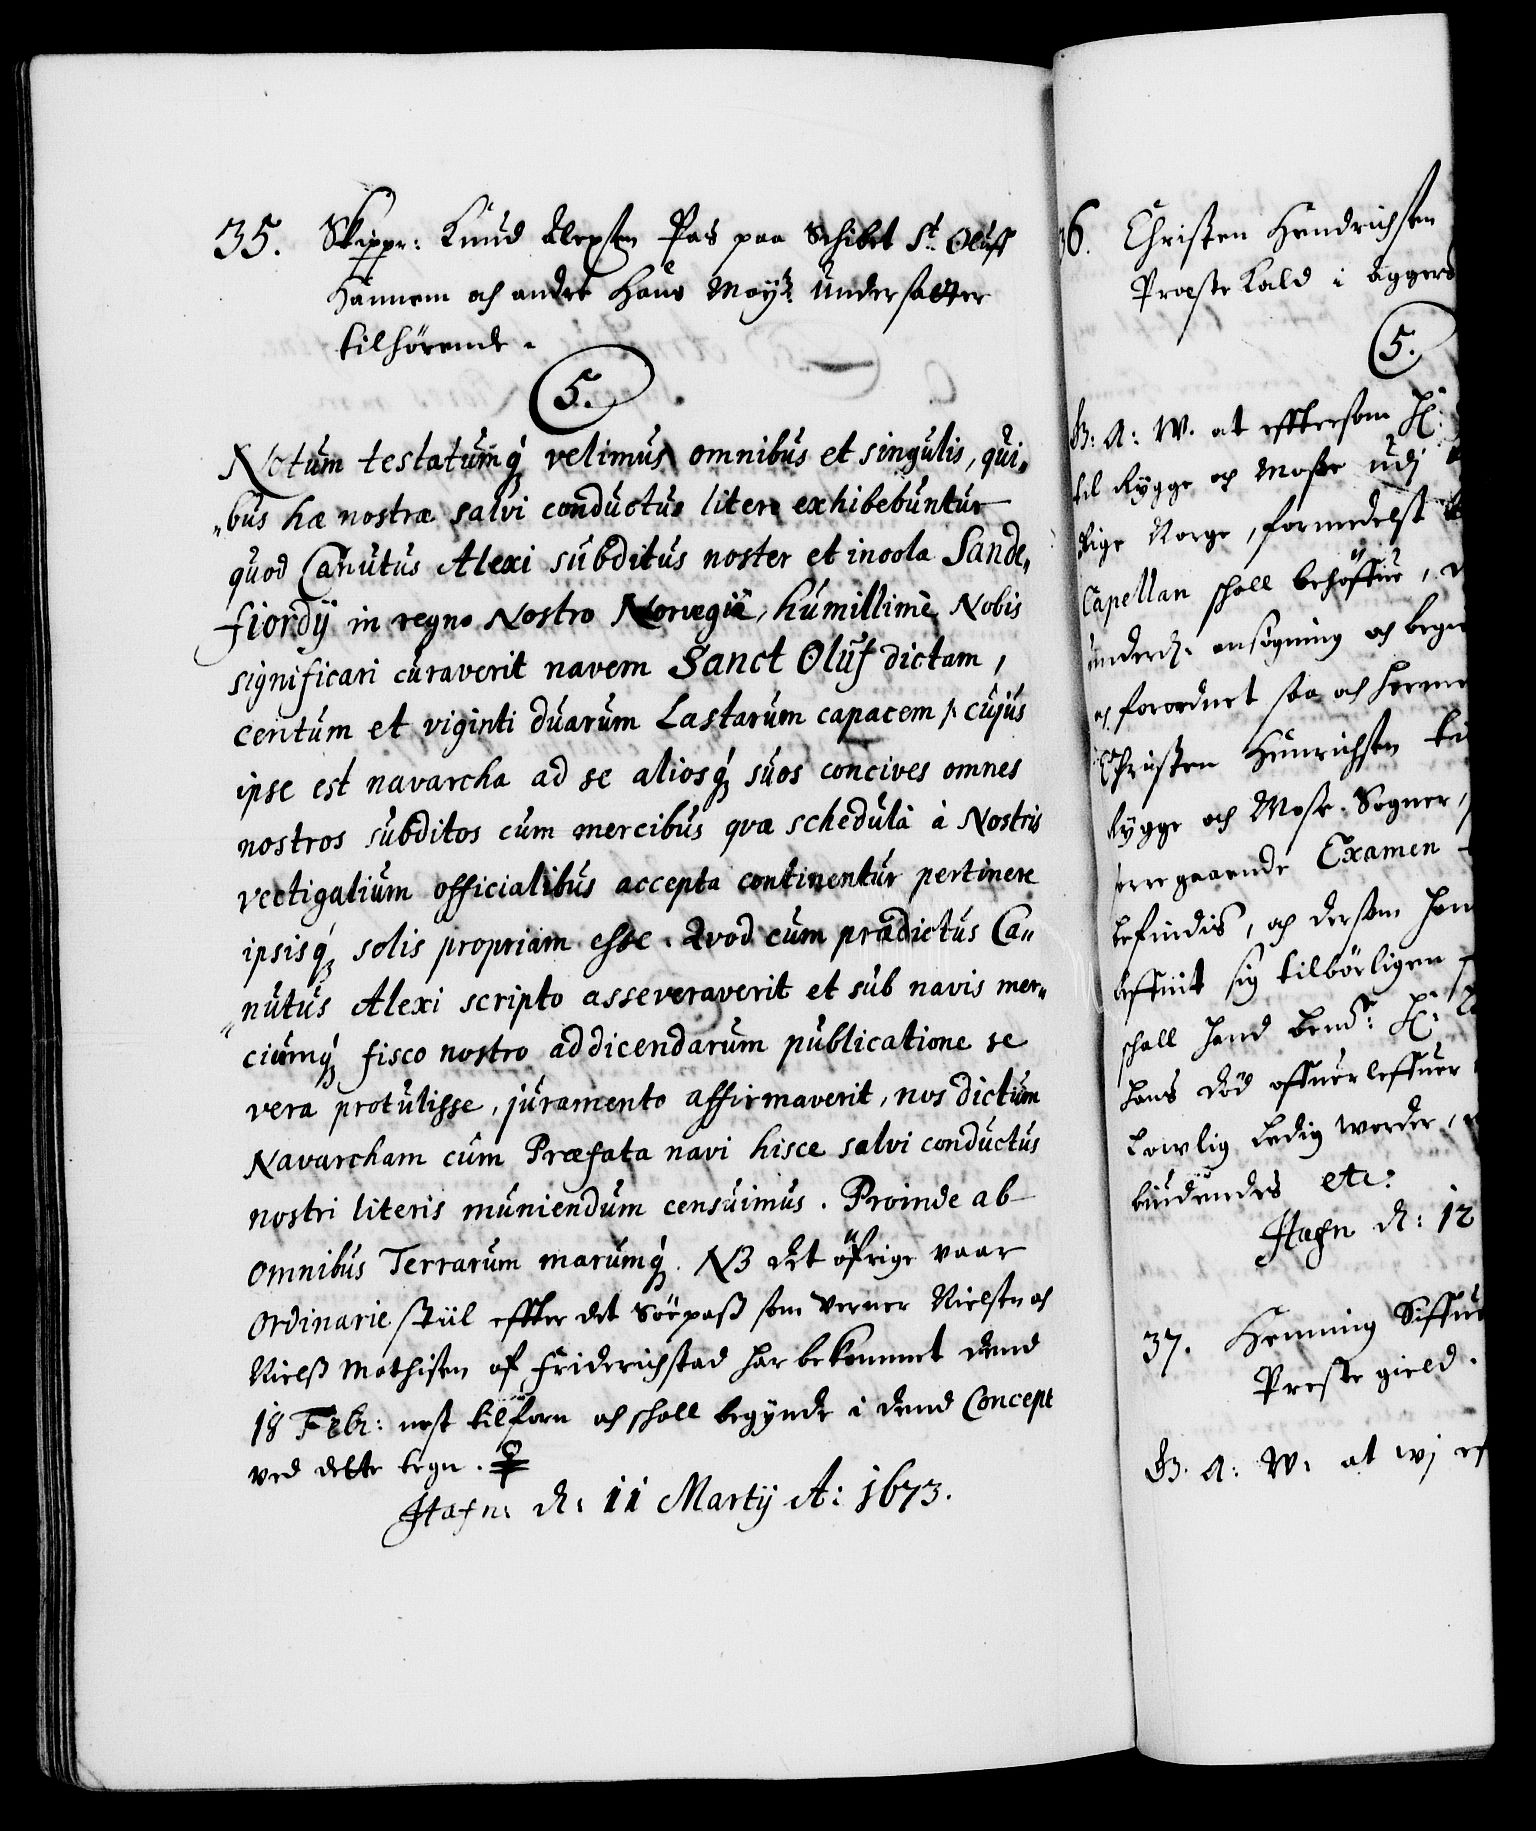 35. Skipper: Knud Alexsen Pas paa Schibet St. Oluff
Hannem och andre Hans Mayts: Undersatter
tilhörende.
5.
Notum testatumq́ velimus omnibus et singulis, qui„
„bus hæ nostræ salvi conductus literæ exhibebuntur
quod Canutus Alexi subditus noster et incola Sande„
fiordij in regno Nostro Norvegiæ, humillimè Nobis
significari curaverit navem Sanct Oluf dictam,
centum et viginti duarum Lastarum capacem, cujus
ipse est navarcha ad se aliosq́ suos concives omnes
nostros subditos cum mercibus qvæ schedulâ à Nostris
vectigalium officialibus accepta continentur pertinere
ipsisq́ solis propriam esse. Qvod cum prædictus Ca„
„nutus Alexi scripto asseveraverit et sub navis mer„
ciumq́ fisco nostro addicendarum publicatione se
vera protulisse, juramento affirmaverit, nos dictum
Navarcham cum Præfata navi hisce salvi conductus
nostri literis muniendum censuimus. Proinde ab
omnibus Terrarum marumq́. NB det öfrige vaar
ordinarie stiil effter det Söepass som Verner Nielsen och
Nielss Mathisen af Friderichstad har bekommet dend
18 Febr: nest tilforn och schall begynde i dend Concept
ved dette tegn.
Hafn: d: 11 Martij A: 1673.
36. Christen Hendrichsen
Præste Kald i Aggers
5.
G: A: W. at efftersom H:
til Rygge og Mosse udj
Rige Norge, formedelst
Capellan schall behöffue,
underd. ansögning och begier
og forordnet saa och herme
Christen Hinrichsen til
Rygge och Mosse Sogner,
forregaaende Examen
befindis, och dersom hand
schall hand bem:te H:
hans död offuerleffuer
Lovlig Ledig worder,
etc:
Hafn d: 12
37. Henning Siffuer
Preste gield.
G. A: W: at wj ef